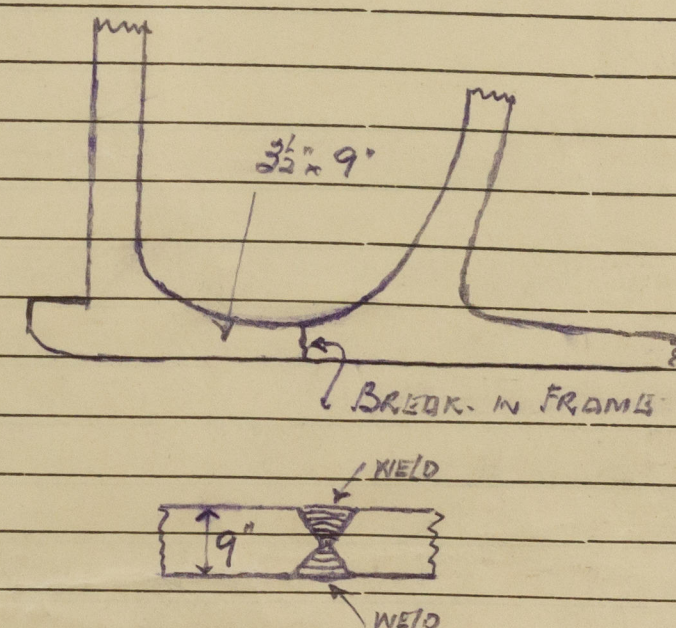 3 1/2" x 9"
BREAK. IN FRAME
WELD
9"
WELD